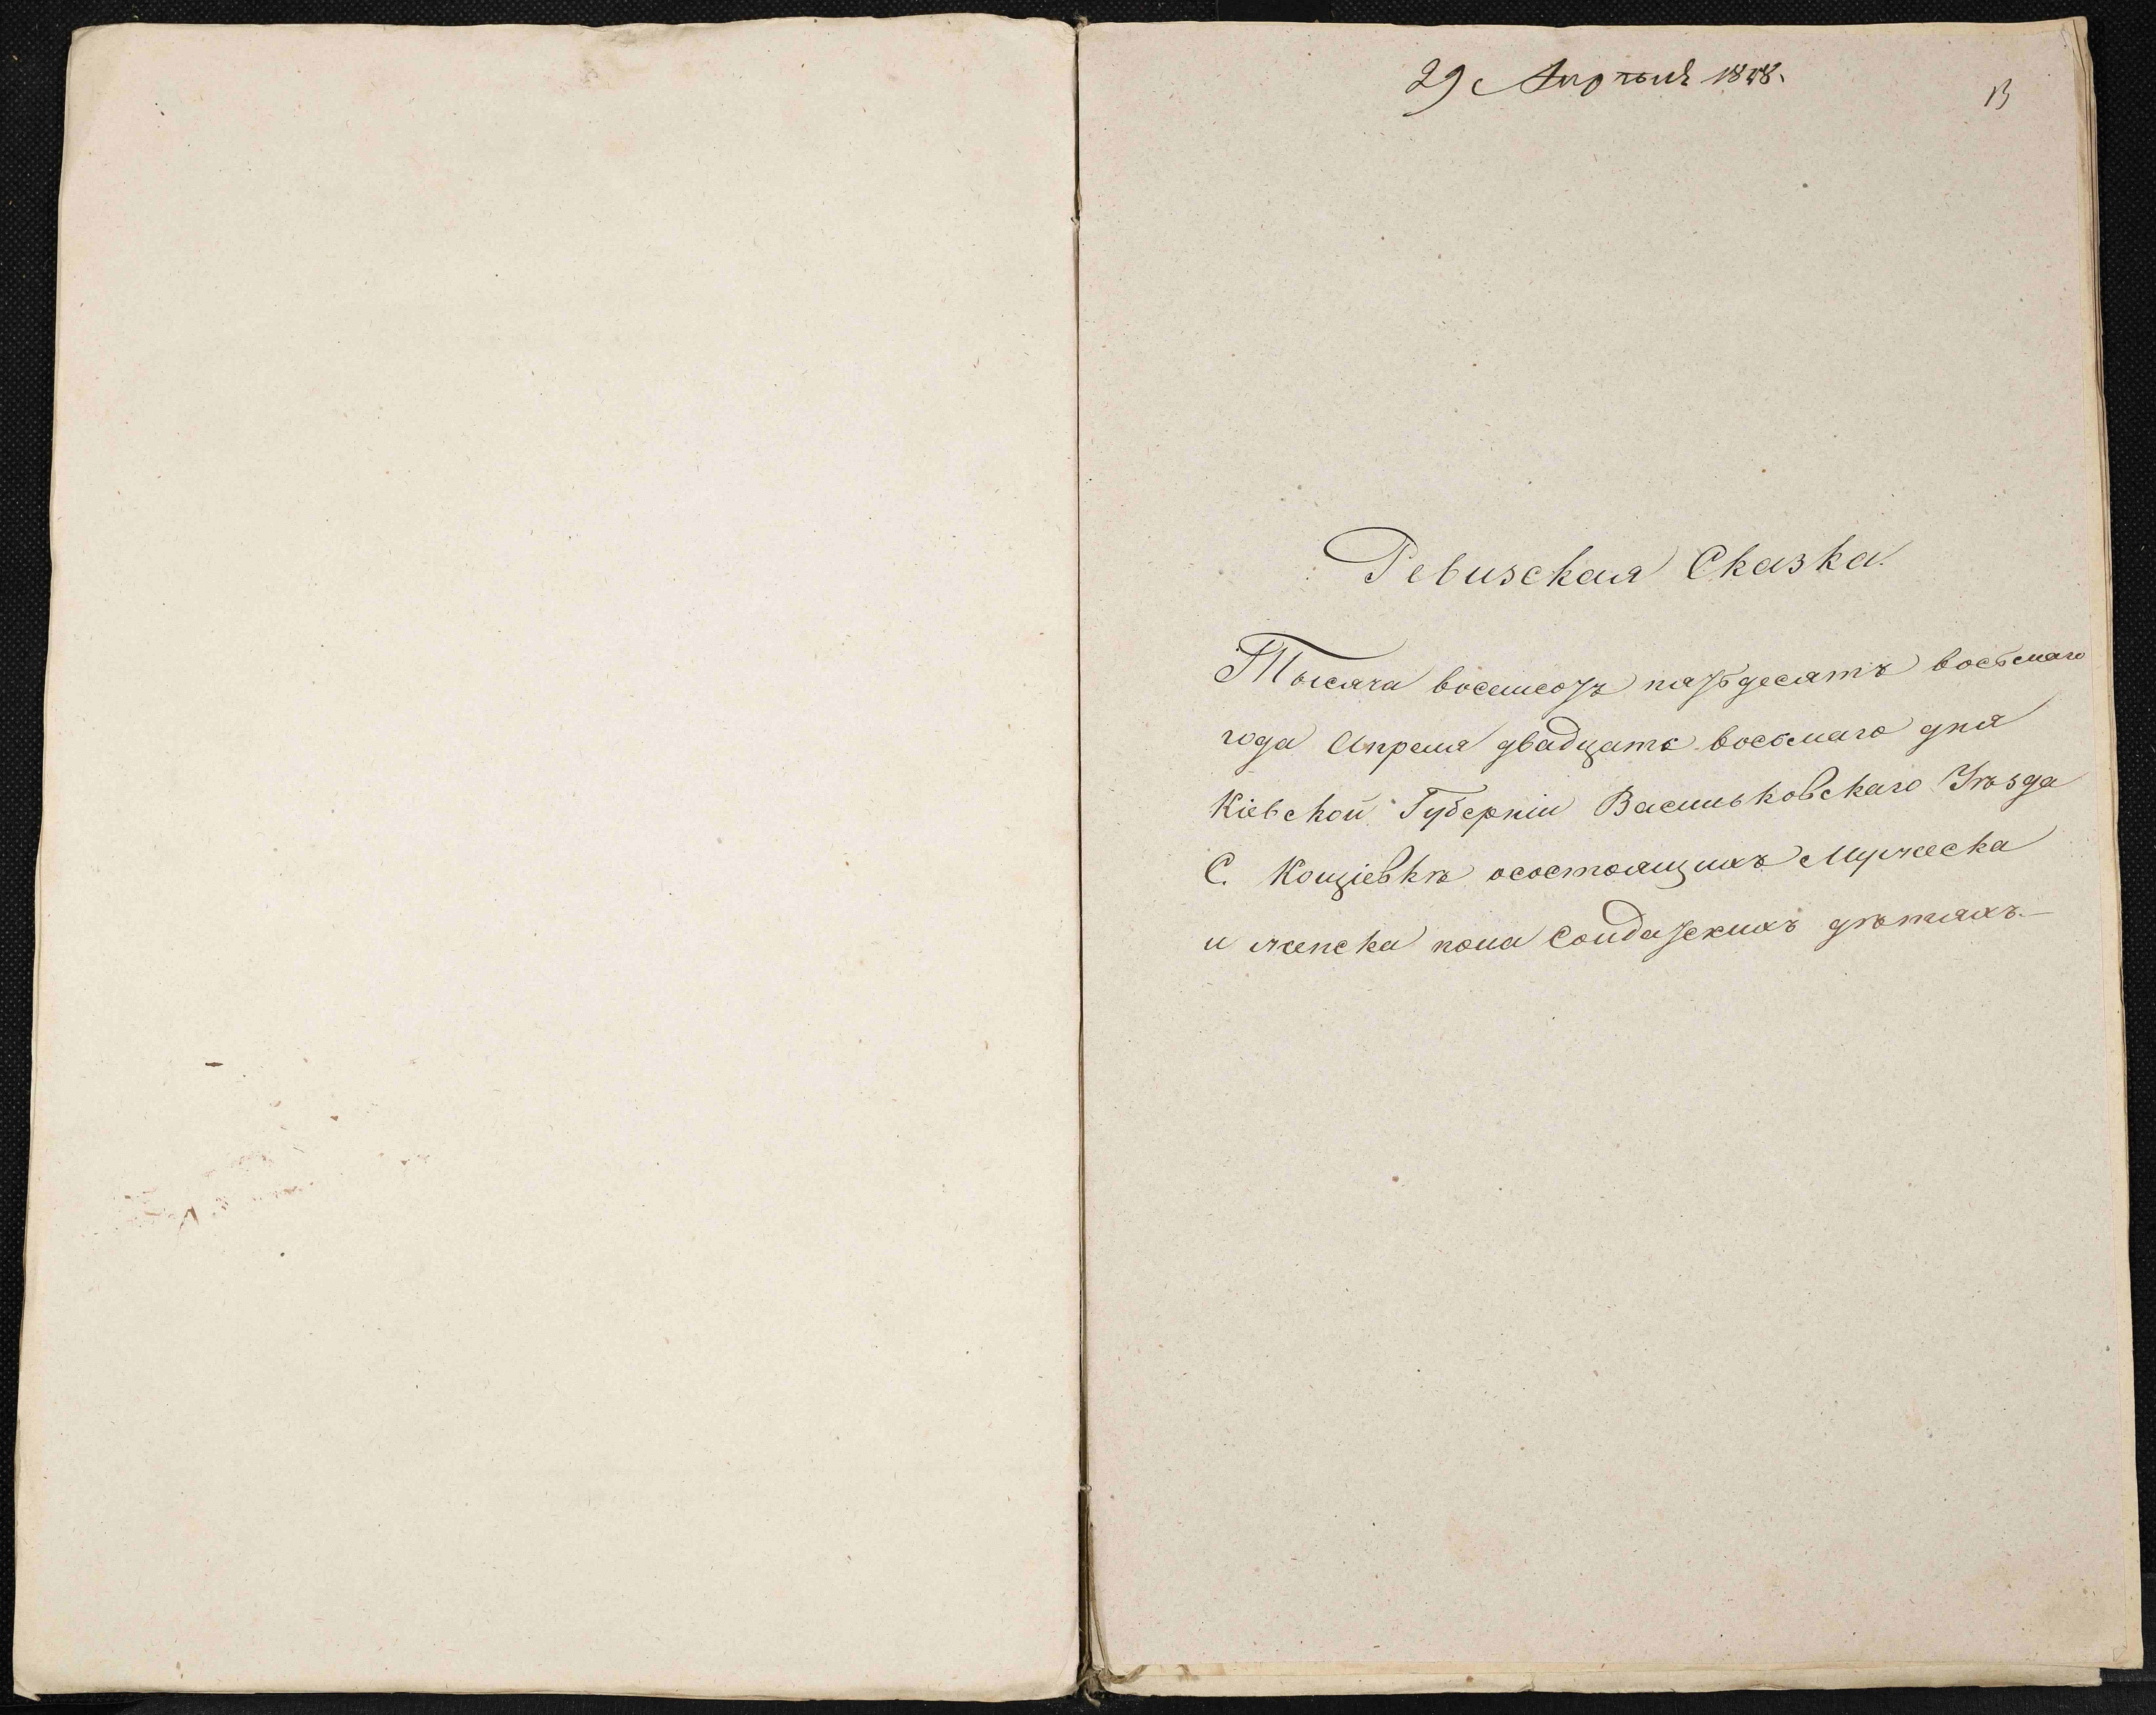 29 Апрѣля 1858.
13
Ревизская Сказка.
Тысяча восемсотъ пятьдесятъ восьмаго
года Апреля двадцать восьмаго дня
Кіевской Губерніи Васильковскаго Уѣзда
С. Кощіевкѣ осостоящихъ Мужеска
и женска пола Солдатскихъ дѣтяхъ.—